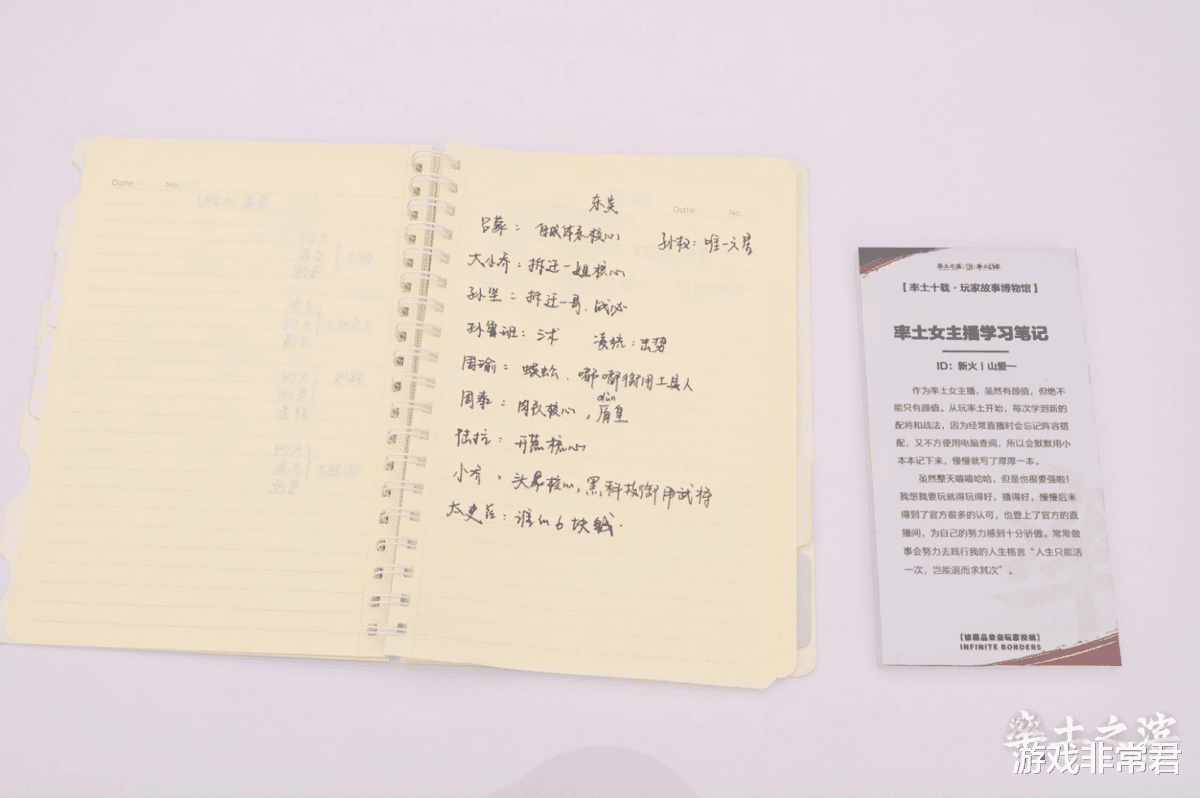 Date No
Date No
东吴
吕蒙： 自城体系核心 孙权：唯一六星
大小乔：拆迁一姐核心
孙坚：拆迁一哥，战必
孙鲁班：法术 凌统：出努
周瑜： 蜈蚣，嘟嘟御用工具人
dùn
周泰： 肉队核心，盾皇
陆抗： 开荒核心
小乔，头晕核心，黑科技御用武将
太史慈：谁的6块钱.
【率土十载·玩家故事博物馆】
率土女主播学习笔记
ID：新火丨山爱一
作为率土女主播，虽然有颜值，但绝不
能只有颜值。从玩率土开始，每次学到新的
配将和战法，因为经常直播时会忘记阵容搭
配，又不方便用电脑查阅，所以会默默用小
本本记下来，慢慢就写了厚厚一本。
虽然整天嘻嘻哈哈，但是也很要强啦！
我想我要玩就得玩得好，播得好，慢慢后来
得到了官方很多的认可，也登上了官方的直
播间，为自己的努力感到十分骄傲。常常做
事会努力去践行我的人生格言“人生只能活
一次，岂能退而求其次”。
【该展品来自玩家投稿】
INFINITE BORDERS
率土之滨
游戏非常君